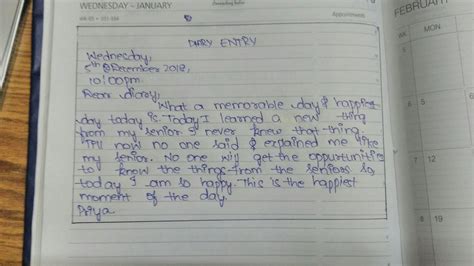 WEDNESDAY – JANUARY
Appointments
DIARY ENTRY
Wednesday,
5th December 2018,
10:00pm.
Dear diary,
What a memorable day & happiest
day today is Today I learned a new thing
from my senior I never knew that thing.
Till now no one said & explained me like
my senior. No one will get the oppurtunities
to know the things from the seniors so
today I am so happy. This is the happiest
moment of the day.
Priya.
FEBRUAR
WK M
5 5 6
6 12
7
8 19